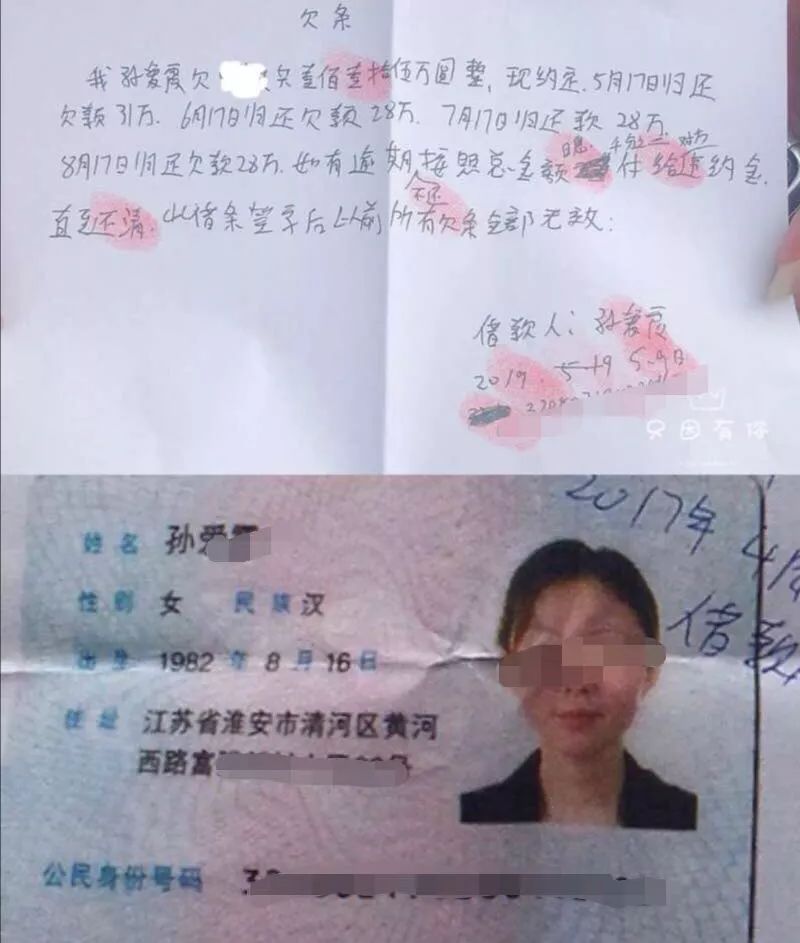 欠条
我孙爱霞欠 壹佰壹拾伍万圆整，现约定，5月17日归还
欠款31万．6月17日归还欠款28万．7月17日还款28万．
8月17日归还欠款28万．如有逾期按照总金额日息4分 付给对方违约金．
直至还清．此借条签字后以前所有欠条全部无效：
借款人：孙爱霞
2019．5-19 5.9日
只因有你
2017年4月
借款
姓名 孙爱
性别 女 民族 汉
出生 1982年8月16日
住址 江苏省淮安市清河区黄河
西路富
公民身份号码